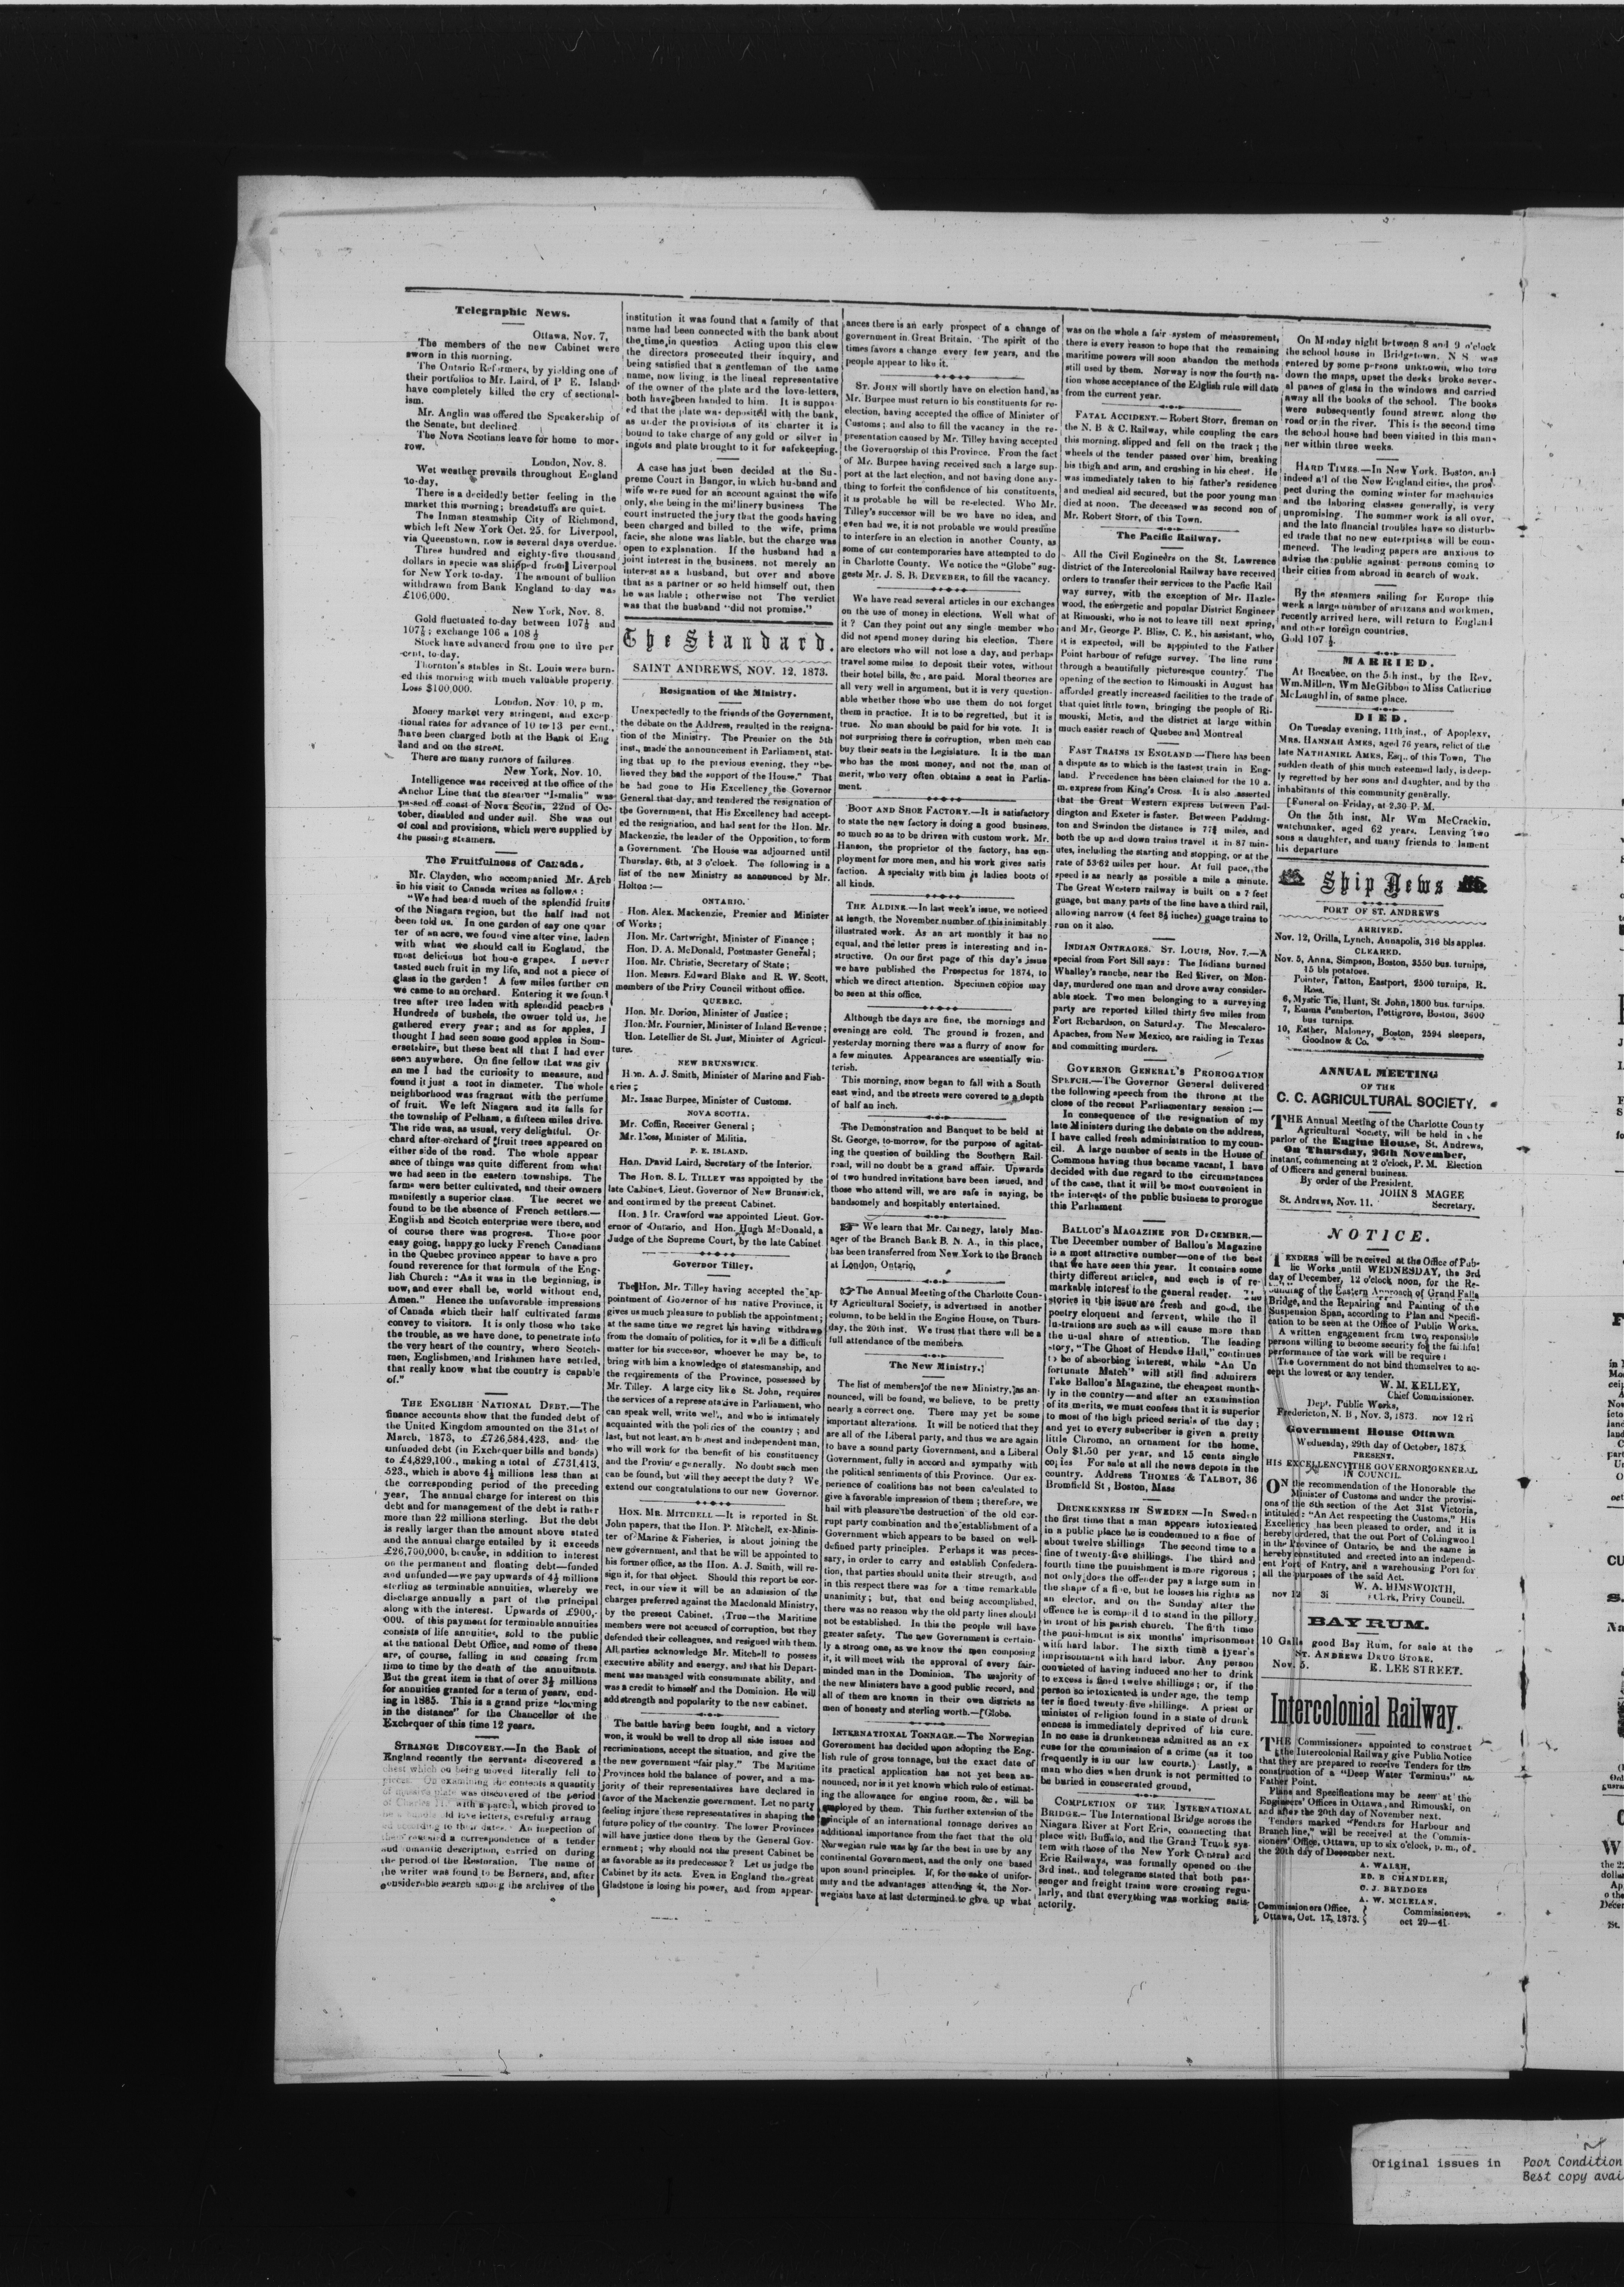 Telegraphic News.
Ottawa, Nov. 7,
The members of the new Cabinet were
sworn in this morning.
The Ontario Reformers, by yielding one of
their portfolios to Mr. Laird, of P E. Island
have completely killed the cry of sectional-
ism.
Mr. Anglin was offered the Speakership of
the Senate, but declined
The Nova Scotians leave for home to mor-
row.
London, Nov. 8.
Wet weather prevails throughout England
to-day.
There is a decidedly better feeling in the
market this morning; breadstuffs are quiet.
The Inman steamship City of Richmond,
which left New York Oct. 25, for Liverpool,
via Queenstown, now is several days overdue.
Three hundred and eighty-five thousand
dollars in specie was shipped from Liverpool
for New York to-day. The amount of bullion
withdrawn from Bank England to-day was
£106,000.
New York, Nov. 8.
Gold fluctuated to-day between 107½ and
107½; exchange 106 a 108½
Stock have advanced from one to five per
cent, to-day.
Thornton's stables in St. Louis were burn-
ed this morning with much valuable property.
Loss $100,000.
London, Nov. 10, p m.
Money market very stringent, and excep-
tional rates for advance of 10 to 13 per cent.,
have been charged both at the Bank of Eng
land and on the street.
There are many rumors of failures
New York, Nov. 10.
Intelligence was received at the office of the
Anchor Line that the steamer "Ismalia" was
passed off coast of Nova Scotia, 22nd of Oc-
tober, disabled and under sail. She was out
of coal and provisions, which were supplied by
the passing steamers.
The Fruitfulness of Canada.
Mr. Clayden, who accompanied Mr. Arch
in his visit to Canada writes as follows:
"We had heard much of the splendid fruits
of the Niagara region, but the half had not
been told us. In one garden of say one quar
ter of an acre, we found vine after vine, laden
with what we should call in England, the
most delicious hot house grapes. I never
tasted such fruit in my life, and not a piece of
glass in the garden! A few miles further on
we came to an orchard. Entering it we found
tree after tree laden with splendid peaches
Hundreds of bushels, the owner told us, he
gathered every year; and as for apples, I
thought I had seen some good apples in Som-
ersetshire, but these beat all that I had ever
seen anywhere. On fine fellow that was giv
en me I had the curiosity to measure, and
found it just a foot in diameter. The whole
neighborhood was fragrant with the perfume
of fruit. We left Niagara and its falls for
the township of Pelham, a fifteen miles drive.
The ride was, as usual, very delightful. Or-
chard after orchard of fruit trees appeared on
either side of the road. The whole appear
ance of things was quite different from what
we had seen in the eastern townships. The
farms were better cultivated, and their owners
manifestly a superior class. The secret we
found to be the absence of French settlers.—
English and Scotch enterprise were there, and
of course there was progress. Those poor
easy going, happy go lucky French Canadians
in the Quebec province appear to have a pro
found reverence for that formula of the Eng-
lish Church: "As it was in the beginning, is
now, and ever shall be, world without end,
Amen." Hence the unfavorable impressions
of Canada which their half cultivated farms
convey to visitors. It is only those who take
the trouble, as we have done, to penetrate into
the very heart of the country, where Scotch-
men, Englishmen, and Irishmen have settled,
that really know what the country is capable
of."
THE ENGLISH NATIONAL DEBT.—The
finance accounts show that the funded debt of
the United Kingdom amounted on the 31st of
March, 1873, to £726,584,423, and the
unfunded debt (in Exchequer bills and bonds)
to £4,829,100., making a total of £731,413,
523., which is above 4½ millions less than at
the corresponding period of the preceding
year. The annual charge for interest on this
debt and for management of the debt is rather
more than 22 millions sterling. But the debt
is really larger than the amount above stated
and the annual charge entailed by it exceeds
£26,700,000, because, in addition to interest
on the permanent and floating debt—funded
and unfunded—we pay upwards of 4½ millions
sterling as terminable annuities, whereby we
discharge annually a part of the principal
along with the interest. Upwards of £900,-
000. of this payment for terminable annuities
consists of life annuities, sold to the public
at the national Debt Office, and some of these
are, of course, falling in and ceasing from
time to time by the death of the annuitants.
But the great item is that of over 3½ millions
for annuities granted for a term of years, end-
ing in 1885. This is a grand prize "looming
in the distance" for the Chancellor of the
Exchequer of this time 12 years.
STRANGE DISCOVERY.—In the Bank of
England recently the servants discovered a
chest which on being moved literally fell to
pieces. On examining the contents a quantity
of massive plate was discovered of the period
of Charles II. with a parcel, which proved to
be a bundle old love letters, carefully arrang
ed according to their dates. An inspection of
these revealed a correspondence of a tender
and romantic description, carried on during
the period of the Restoration. The name of
the writer was found to be Berners, and, after
considerable search among the archives of the
institution it was found that a family of that
name had been connected with the bank about
the time in question Acting upon this clew
the directors prosecuted their inquiry, and
being satisfied that a gentleman of the same
name, now living is the lineal representative
of the owner of the plate and the love-letters,
both have been handed to him. It is suppos
ed that the plate was deposited with the bank,
as under the provisions of its charter it is
bound to take charge of any gold or silver in
ingots and plate brought to it for safekeeping.
A case has just been decided at the Su-
preme Court in Bangor, in which husband and
wife were sued for an account against the wife
only, she being in the millinery business The
court instructed the jury that the goods having
been charged and billed to the wife, prima
facie, she alone was liable, but the charge was
open to explanation. If the husband had a
joint interest in the business, not merely an
interest as a husband, but over and above
that as a partner or so held himself out, then
he was liable; otherwise not The verdict
was that the husband "did not promise."
The Standard.
SAINT ANDREWS, NOV. 12, 1873.
Resignation of the Ministry.
Unexpectedly to the friends of the Government,
the debate on the Address, resulted in the resigna-
tion of the Ministry. The Premier on the 5th
inst., made the announcement in Parliament, stat-
ing that up to the previous evening, they "be-
lieved they had the support of the House." That
he had gone to His Excellency the Governor
General that day, and tendered the resignation of
the Government, that His Excellency had accept-
ed the resignation, and had sent for the Hon. Mr.
Mackenzie, the leader of the Opposition, to form
a Government. The House was adjourned until
Thursday, 6th, at 3 o'clock. The following is a
list of the new Ministry as announced by Mr.
Holton:—
ONTARIO.
Hon. Alex. Mackenzie, Premier and Minister
of Works;
Hon. Mr. Cartwright, Minister of Finance;
Hon. D. A. McDonald, Postmaster General;
Hon. Mr. Christie, Secretary of State;
Hon. Messrs. Edward Blake and R. W. Scott,
members of the Privy Council without office.
QUEBEC.
Hon. Mr. Dorion, Minister of Justice;
Hon. Mr. Fournier, Minister of Inland Revenue;
Hon. Letellier de St. Just, Minister of Agricul-
ture.
NEW BRUNSWICK.
Hon. A. J. Smith, Minister of Marine and Fish-
eries;
Mr. Isaac Burpee, Minister of Customs.
NOVA SCOTIA.
Mr. Coffin, Receiver General;
Mr. Ross, Minister of Militia.
P. E. ISLAND.
Hon. David Laird, Secretary of the Interior.
The Hon. S. L. TILLEY was appointed by the
late Cabinet, Lieut. Governor of New Brunswick,
and confirmed by the present Cabinet.
Hon. Mr. Crawford was appointed Lieut. Gov-
ernor of Ontario, and Hon. Hugh McDonald, a
Judge of the Supreme Court, by the late Cabinet
Governor Tilley.
The Hon. Mr. Tilley having accepted the ap-
pointment of Governor of his native Province, it
gives us much pleasure to publish the appointment;
at the same time we regret his having withdrawn
from the domain of politics, for it will be a difficult
matter for his successor, whoever he may be, to
bring with him a knowledge of statesmanship, and
the requirements of the Province, possessed by
Mr. Tilley. A large city like St. John, requires
the services of a representative in Parliament, who
can speak well, write well, and who is intimately
acquainted with the politics of the country; and
last, but not least, an honest and independent man,
who will work for the benefit of his constituency
and the Province generally. No doubt such men
can be found, but will they accept the duty? We
extend our congratulations to our new Governor.
HON. MR. MITCHELL—It is reported in St.
John papers, that the Hon. P. Mitchell, ex-Minis-
ter of Marine & Fisheries, is about joining the
new government, and that he will be appointed to
his former office, as the Hon. A. J. Smith, will re-
sign it, for that object. Should this report be cor-
rect, in our view it will be an admission of the
charges preferred against the Macdonald Ministry,
by the present Cabinet. True—the Maritime
members were not accused of corruption, but they
defended their colleagues, and resigned with them.
All parties acknowledge Mr. Mitchell to possess
executive ability and energy, and that his Depart-
ment was managed with consummate ability, and
was a credit to himself and the Dominion. He will
add strength and popularity to the new cabinet.
The battle having been fought, and a victory
won, it would be well to drop all side issues and
recriminations, accept the situation, and give the
the new government "a fair play." The Maritime
Provinces hold the balance of power, and a ma-
jority of their representatives have declared in
favor of the Mackenzie government. Let no party
feeling injure these representatives in shaping the
future policy of the country. The lower Provinces
will have justice done them by the General Gov-
ernment; why should not the present Cabinet be
as favorable as its predecessor? Let us judge the
Cabinet by its acts. Even in England the great
Gladstone is losing his power, and from appear-
ances there is an early prospect of a change of
government in Great Britain. The spirit of the
times favors a change every few years, and the
people appear to like it.
ST. JOHN will shortly have on election hand, as
Mr. Burpee must return io his constituents for re-
election, having accepted the office of Minister of
Customs; and also to fill the vacancy in the re-
presentation caused by Mr. Tilley having accepted
the Governorship of this Province. From the fact
of Mr. Burpee having received such a large sup-
port at the last election, and not having done any-
thing to forfeit the confidence of his constituents,
it is probable he will be re-elected. Who Mr.
Tilley's successor will be we have no idea, and
even had we, it is not probable we would presume
to interfere in an election in another County, as
some of our contemporaries have attempted to do
in Charlotte County. We notice the "Globe" sug-
gests Mr. J. S. B. DEVEBER, to fill the vacancy.
We have read several articles in our exchanges
on the use of money in elections. Well what of
it? Can they point out any single member who
did not spend money during his election. There
are electors who will not lose a day, and perhaps
travel some miles to deposit their votes, without
their hotel bills, &c, are paid. Moral theories are
all very well in argument, but it is very question-
able whether those who use them do not forget
them in practice. It is to be regretted, but it is
true. No man should be paid for his vote. It is
not surprising there is corruption, when men can
buy their seats in the Legislature. It is the man
who has the most money, and not the man of
merit, who very often obtains a seat in Parlia-
ment.
BOOT AND SHOE FACTORY.—It is satisfactory
to state the new factory is doing a good business.
so much so as to be driven with custom work. Mr.
Hanson, the proprietor of the factory, has em-
ployment for more men, and his work gives satis
faction. A specialty with him is ladies boots of
all kinds.
THE ALDINE.—In last week's issue, we noticed
at length, the November number of this inimitably
illustrated work. As an art monthly it has no
equal, and the letter press is interesting and in-
structive. On our first page of this day's issue
we have published the Prospectus for 1874, to
which we direct attention. Specimen copies may
be seen at this office.
Although the days are fine, the mornings and
evenings are cold. The ground is frozen, and
yesterday morning there was a flurry of snow for
a few minutes. Appearances are essentially win-
terish.
This morning, snow began to fall with a South
east wind, and the streets were covered to a depth
of half an inch.
The Demonstration and Banquet to be held at
St. George, to-morrow, for the purpose of agitat-
ing the question of building the Southern Rail-
road, will no doubt be a grand affair. Upwards
of two hundred invitations have been issued, and
those who attend will, we are safe in saying, be
handsomely and hospitably entertained.
☞ We learn that Mr. Carnegy, lately Man-
ager of the Branch Bank B. N. A., in this place,
has been transferred from New York to the Branch
at London, Ontario.
☞ The Annual Meeting of the Charlotte Coun-
ty Agricultural Society, is advertised in another
column, to be held in the Engine House, on Thurs-
day, the 20th inst. We trust that there will be a
full attendance of the members.
The New Ministry.
The list of members of the new Ministry, as an-
nounced, will be found, we believe, to be pretty
nearly a correct one. There may yet be some
important alterations. It will be noticed that they
are all of the Liberal party, and thus we are again
to have a sound party Government, and a Liberal
Government, fully in accord and sympathy with
the political sentiments of this Province. Our ex-
perience of coalitions has not been calculated to
give a favorable impression of them; therefore, we
hail with pleasure the destruction of the old cor-
rupt party combination and the establishment of a
Government which appears to be based on well-
defined party principles. Perhaps it was neces-
sary, in order to carry and establish Confedera-
tion, that parties should unite their strength, and
in this respect there was for a time remarkable
unanimity; but, that end being accomplished,
there was no reason why the old party lines should
not be established. In this the people will have
greater safety. The new Government is certain-
ly a strong one, as we know the men composing
it, it will meet with the approval of every fair-
minded man in the Dominion. The majority of
the new Ministers have a good public record, and
all of them are known in their own districts as
men of honesty and sterling worth.—[Globe.
INTERNATIONAL TONNAGE.—The Norwegian
Government has decided upon adopting the Eng-
lish rule of gross tonnage, but the exact date of
its practical application has not yet been an-
nounced, nor is it yet known which rule of estimat-
ing the allowance for engine room, &c. will be
employed by them. This further extension of the
principle of an international tonnage derives an
additional importance from the fact that the old
Norwegian rule was by far the best in use by any
continental Government, and the only one based
upon sound principles. If, for the sake of unifor-
mity and the advantages attending it, the Nor-
wegians have at last determined to give up what
was on the whole a fair system of measurement,
there is every reason to hope that the remaining
maritime powers will soon abandon the methods
still used by them. Norway is now the fourth na-
tion whose acceptance of the Edglish rule will date
from the current year.
FATAL ACCIDENT.—Robert Storr, fireman on
the N. B & C. Railway, while coupling the cars
this morning, slipped and fell on the track; the
wheels of the tender passed over him, breaking
his thigh and arm, and crushing in his chest. He
was immediately taken to his father's residence
and medical aid secured, but the poor young man
died at noon. The deceased was second son of
Mr. Robert Storr, of this Town.
The Pacific Railway.
All the Civil Engineers on the St. Lawrence
district of the Intercolonial Railway have received
orders to transfer their services to the Pacfic Rail
way survey, with the exception of Mr. Hazle-
wood, the energetic and popular District Engineer
at Rimouski, who is not to leave till next spring,
and Mr. George P. Bliss, C. E., his assistant, who,
it is expected, will be appointed to the Father
Point harbour of refuge survey. The line runs
through a beautifully picturesque country. The
opening of the section to Rimouski in August has
afforded greatly increased facilities to the trade of
that quiet little town, bringing the people of Ri-
mouski, Metis, and the district at large within
much easier reach of Quebec and Montreal
FAST TRAINS IN ENGLAND—There has been
a dispute as to which is the fastest train in Eng-
land. Precedence has been claimed for the 10 a.
m. express from King's Cross. It is also asserted
that the Great Western express between Pad-
dington and Exeter is faster. Between Padding-
ton and Swindon the distance is 77¼ miles, and
both the up and down trains travel it in 87 min-
utes, including the starting and stopping, or at the
rate of 53·62 miles per hour. At full pace, the
speed is as nearly as possible a mile a minute.
The Great Western railway is built on a 7 feet
guage, but many parts of the line have a third rail,
allowing narrow (4 feet 8½ inches) guage trains to
run on it also.
INDIAN ONTRAGES. ST. LOUIS, Nov. 7.—A
special from Fort Sill says: The Indians burned
Whalley's ranche, near the Red River, on Mon-
day, murdered one man and drove away consider-
able stock. Two men belonging to a surveying
party are reported killed thirty five miles from
Fort Richardson, on Saturday. The Mescalero-
Apaches, from New Mexico, are raiding in Texas
and committing murders.
GOVERNOR GENERAL'S PROROGATION
SPEECH.—The Governor General delivered
the following speech from the throne at the
close of the recent Parliamentary session:—
In consequence of the resignation of my
late Ministers during the debate on the address,
I have called fresh administration to my coun-
cil. A large number of seats in the House of
Commons having thus became vacant, I have
decided with due regard to the circumstances
of the case, that it will be most convenient in
the interests of the public business to prorogue
this Parliament
BALLOU'S MAGAZINE FOR DECEMBER.—
The December number of Ballou's Magazine
is a most attractive number—one of the best
that we have seen this year. It contains some
thirty different articles, and each is of re-
markable interest to the general reader. The
stories in this issue are fresh and good, the
poetry eloquent and fervent, while the il
lustrations are such as will cause more than
the usual share of attention. The leading
story, "The Ghost of Hendee Hall," continues
to be of absorbing interest, while "An Un
fortunate Match" will still find admirers
Take Ballou's Magazine, the cheapest month-
ly in the country—and after an examination
of its merits, we must confess that it is superior
to most of the high priced serials of the day;
and yet to every subscriber is given a pretty
little Chromo, an ornament for the home.
Only $1.50 per year, and 15 cents single
copies For sale at all the news depots in the
country. Address THOMES & TALBOT, 36
Bromfield St, Boston, Mass
DRUNKENNESS IN SWEDEN—In Sweden
the first time that a man appears intoxicated
in a public place he is condemned to a fine of
about twelve shillings The second time to a
fine of twenty-five shillings. The third and
fourth time the punishment is more rigorous;
not only does the offender pay a large sum in
the shape of a fine, but he looses his rights as
an elector, and on the Sunday after the
offence he is compelld to stand in the pillory
in front of his parish church. The fifth time
the punishment is six months' imprisonment
with hard labor. The sixth time a year's
imprisonment with hard labor. Any person
convicted of having induced another to drink
to excess is fined twelve shillings; or, if the
person so intoxicated is under age, the temp
ter is fined twenty-five shillings. A priest or
minister of religion found in a state of drunk
enness is immediately deprived of his cure.
In no case is drunkenness admitted as an ex
cuse for the commission of a crime (as it too
frequently is in our law courts.) Lastly, a
man who dies when drunk is not permitted to
be buried in consecrated ground,
COMPLETION OF THE INTERNATIONAL
BRIDGE.—The International Bridge across the
Niagara River at Fort Erie, connecting that
place with Buffalo, and the Grand Trunk sys-
tem with those of the New York Central and
Erie Railways, was formally opened on the
3rd inst., and telegrams stated that both pas-
senger and freight trains were crossing regu-
larly, and that everything was working satis-
actorily.
On Monday night between 8 and 9 o'clock
the school house in Bridgetown, N S was
entered by some persons unknown, who tore
down the maps, upset the desks broke sever-
al panes of glass in the windows and carried
away all the books of the school. The books
were subsequently found strewn along the
road or in the river. This is the second time
the school house had been visited in this man-
ner within three weeks.
HARD TIMES.—In New York, Boston, and
indeed all of the New England cities, the pros-
pect during the coming winter for mechanics
and the laboring classes generally, is very
unpromising. The summer work is all over,
and the late financial troubles have so disturb-
ed trade that no new enterprises will be com-
menced. The leading papers are anxious to
advise the public against persons coming to
their cities from abroad in search of work.
By the steamers sailing for Europe this
week a large number of artizans and workmen,
recently arrived here, will return to England
and other foreign countries.
Gold 107½.
MARRIED.
At Bocabec, on the 5th inst., by the Rev.
Wm. Millen, Wm McGibbon to Miss Catherine
McLaughlin, of same place.
DIED.
On Tuesday evening, 11th inst., of Apoplexy,
MRS. HANNAH AMES, aged 76 years, relict of the
late NATHANIEL AMES, Esq., of this Town, The
sudden death of this much esteemed lady, is deep-
ly regretted by her sons and daughter, and by the
inhabitants of this community generally.
[Funeral on Friday, at 2.30 P. M.
On the 5th inst. Mr Wm McCrackin,
watchmaker, aged 62 years. Leaving two
sons a daughter, and many friends to lament
his departure
Ship News
PORT OF ST. ANDREWS
ARRIVED.
Nov. 12, Orilla, Lynch, Annapolis, 316 bls apples.
CLEARED.
Nov. 5, Anna, Simpson, Boston, 3550 bus. turnips,
15 bls potatoes.
Pointer, Tatton, Eastport, 2500 turnips, R.
Ross.
6, Mystic Tie, Hunt, St. John, 1800 bus. turnips.
7, Emma Pemberton, Pettigrove, Boston, 3600
bus turnips.
10, Esther, Maloney, Boston, 2594 sleepers,
Goodnow & Co.
ANNUAL MEETING
OF THE
C. C. AGRICULTURAL SOCIETY.
THE Annual Meeting of the Charlotte County
Agricultural Society, will be held in the
parlor of the Engine House, St. Andrews,
On Thursday, 26th November,
instant, commencing at 2 o'clock, P. M. Election
of Officers and general business.
By order of the President.
JOHN S MAGEE
St. Andrews, Nov. 11. Secretary.
NOTICE.
TENDERS will be received at the Office of Pub-
lic Works until WEDNESDAY, the 3rd
day of December, 12 o'clock noon, for the Re-
building of the Eastern Approach of Grand Falls
Bridge, and the Repairing and Painting of the
Suspension Span, according to Plan and Specifi-
cation to be seen at the Office of Public Works.
A written engagement from two responsible
persons willing to become security for the faithful
performance of the work will be require
The Government do not bind themselves to ac-
cept the lowest or any tender.
W. M. KELLEY,
Chief Commissioner.
Dept. Public Works,
Fredericton, N. B, Nov. 3, 1873. nov 12 ri
Government House Ottawa
Wednesday, 29th day of October, 1873.
PRESENT.
HIS EXCELLENCY THE GOVERNOR GENERAL
IN COUNCIL.
ON the recommendation of the Honorable the
Minister of Customs and under the provisi-
ons of the 6th section of the Act 31st Victoria,
intituled: "An Act respecting the Customs," His
Excellency has been pleased to order, and it is
hereby ordered, that the out Port of Collingwood
in the Province of Ontario, be and the same is
hereby constituted and erected into an independ-
ent Port of Entry, and a warehousing Port for
all the purposes of the said Act.
W. A. HIMSWORTH,
nov 12 3i Clerk, Privy Council.
BAY RUM.
10 Galls good Bay Rum, for sale at the
ST. ANDREWS DRUG STORE.
Nov. 5. E. LEE STREET.
Intercolonial Railway.
THE Commissioners appointed to construct
the Intercolonial Railway give Public Notice
that they are prepared to receive Tenders for the
construction of a "Deep Water Terminus" at
Father Point.
Plans and Specifications may be seen at the
Engineers' Offices in Ottawa, and Rimouski, on
and after the 20th day of November next.
Tenders marked "Tenders for Harbour and
Branch line," will be received at the Commis-
sioners' Office, Ottawa, up to six o'clock, p. m., of
the 20th day of December next.
A. WALSH,
ED. B CHANDLER,
C. J. BRYDGES
A. W. MCLELAN,
Commissioners Office, Commissioners.
Ottawa, Oct. 17, 1873. oct 29—41
Original issues in Poor Condition
Best copy avai